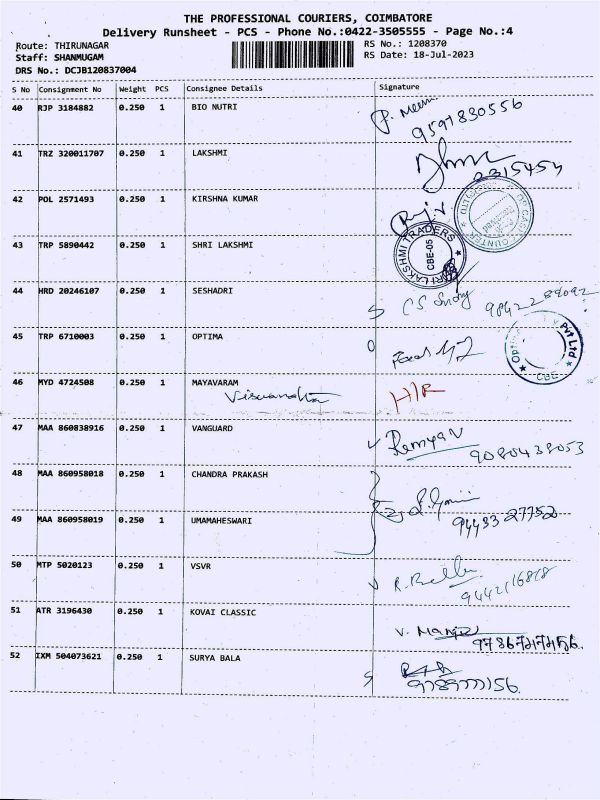 THE PROFESSIONAL COURIERS, COIMBATORE
Delivery Runsheet - PCS - Phone No.:0422-3505555 - Page No.:4
Route: THIRUNAGAR
RS No.: 1208370
Staff: SHANMUGAM
RS Date: 18-Jul-2023
DRS No.: DCJB120837004
S No Consignment No Weight PCS Consignee Details Signature
40 RJP 3184882 0.250 1 BIO NUTRI
9591830556
41 TRZ 320011707 0.250 1 LAKSHMI
2315454
42 POL 2571493 0.250 1 KIRSHNA KUMAR
43 TRP 5890442 0.250 1 SHRI LAKSHMI
SHRI LAKSHMI TRADERS
CBE-05
44 HRD 20246107 0.250 1 SESHADRI
45 TRP 6710003 0.250 1 OPTIMA
Pvt Ltd
CBE
46 MYD 4724508 0.250 1 MAYAVARAM
H/R
47 MAA 860838916 0.250 1 VANGUARD
Remya V
9080438053
48 MAA 860958018 0.250 1 CHANDRA PRAKASH
49 MAA 860958019 0.250 1 UMAMAHESWARI
9443327752
50 MTP 5020123 0.250 1 VSVR
9442116818
51 ATR 3196430 0.250 1 KOVAI CLASSIC
52 IXM 504073621 0.250 1 SURYA BALA